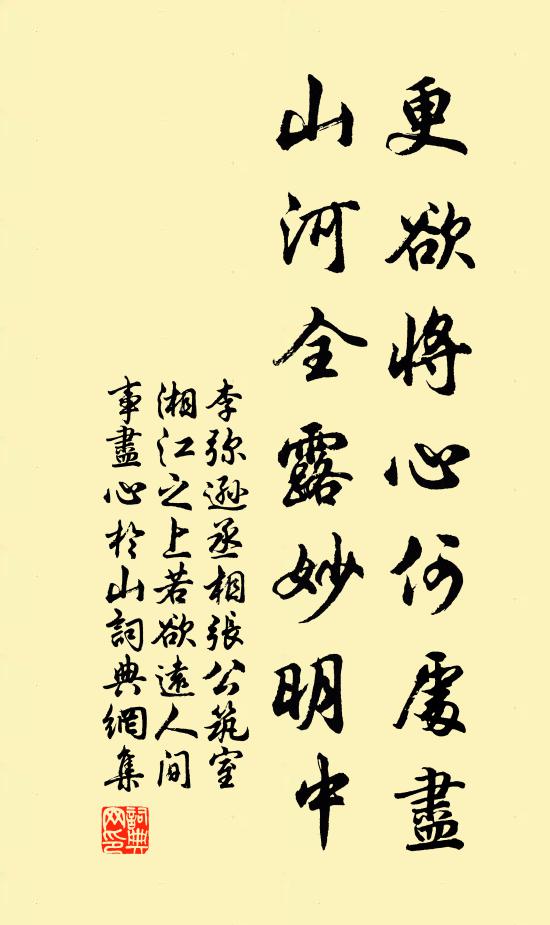 更欲將心何處盡
山河全露妙明中
李弥遜丞相張公筑室
湘江之上若欲遠人间
事盡心於山詞典網集
詞典
网印